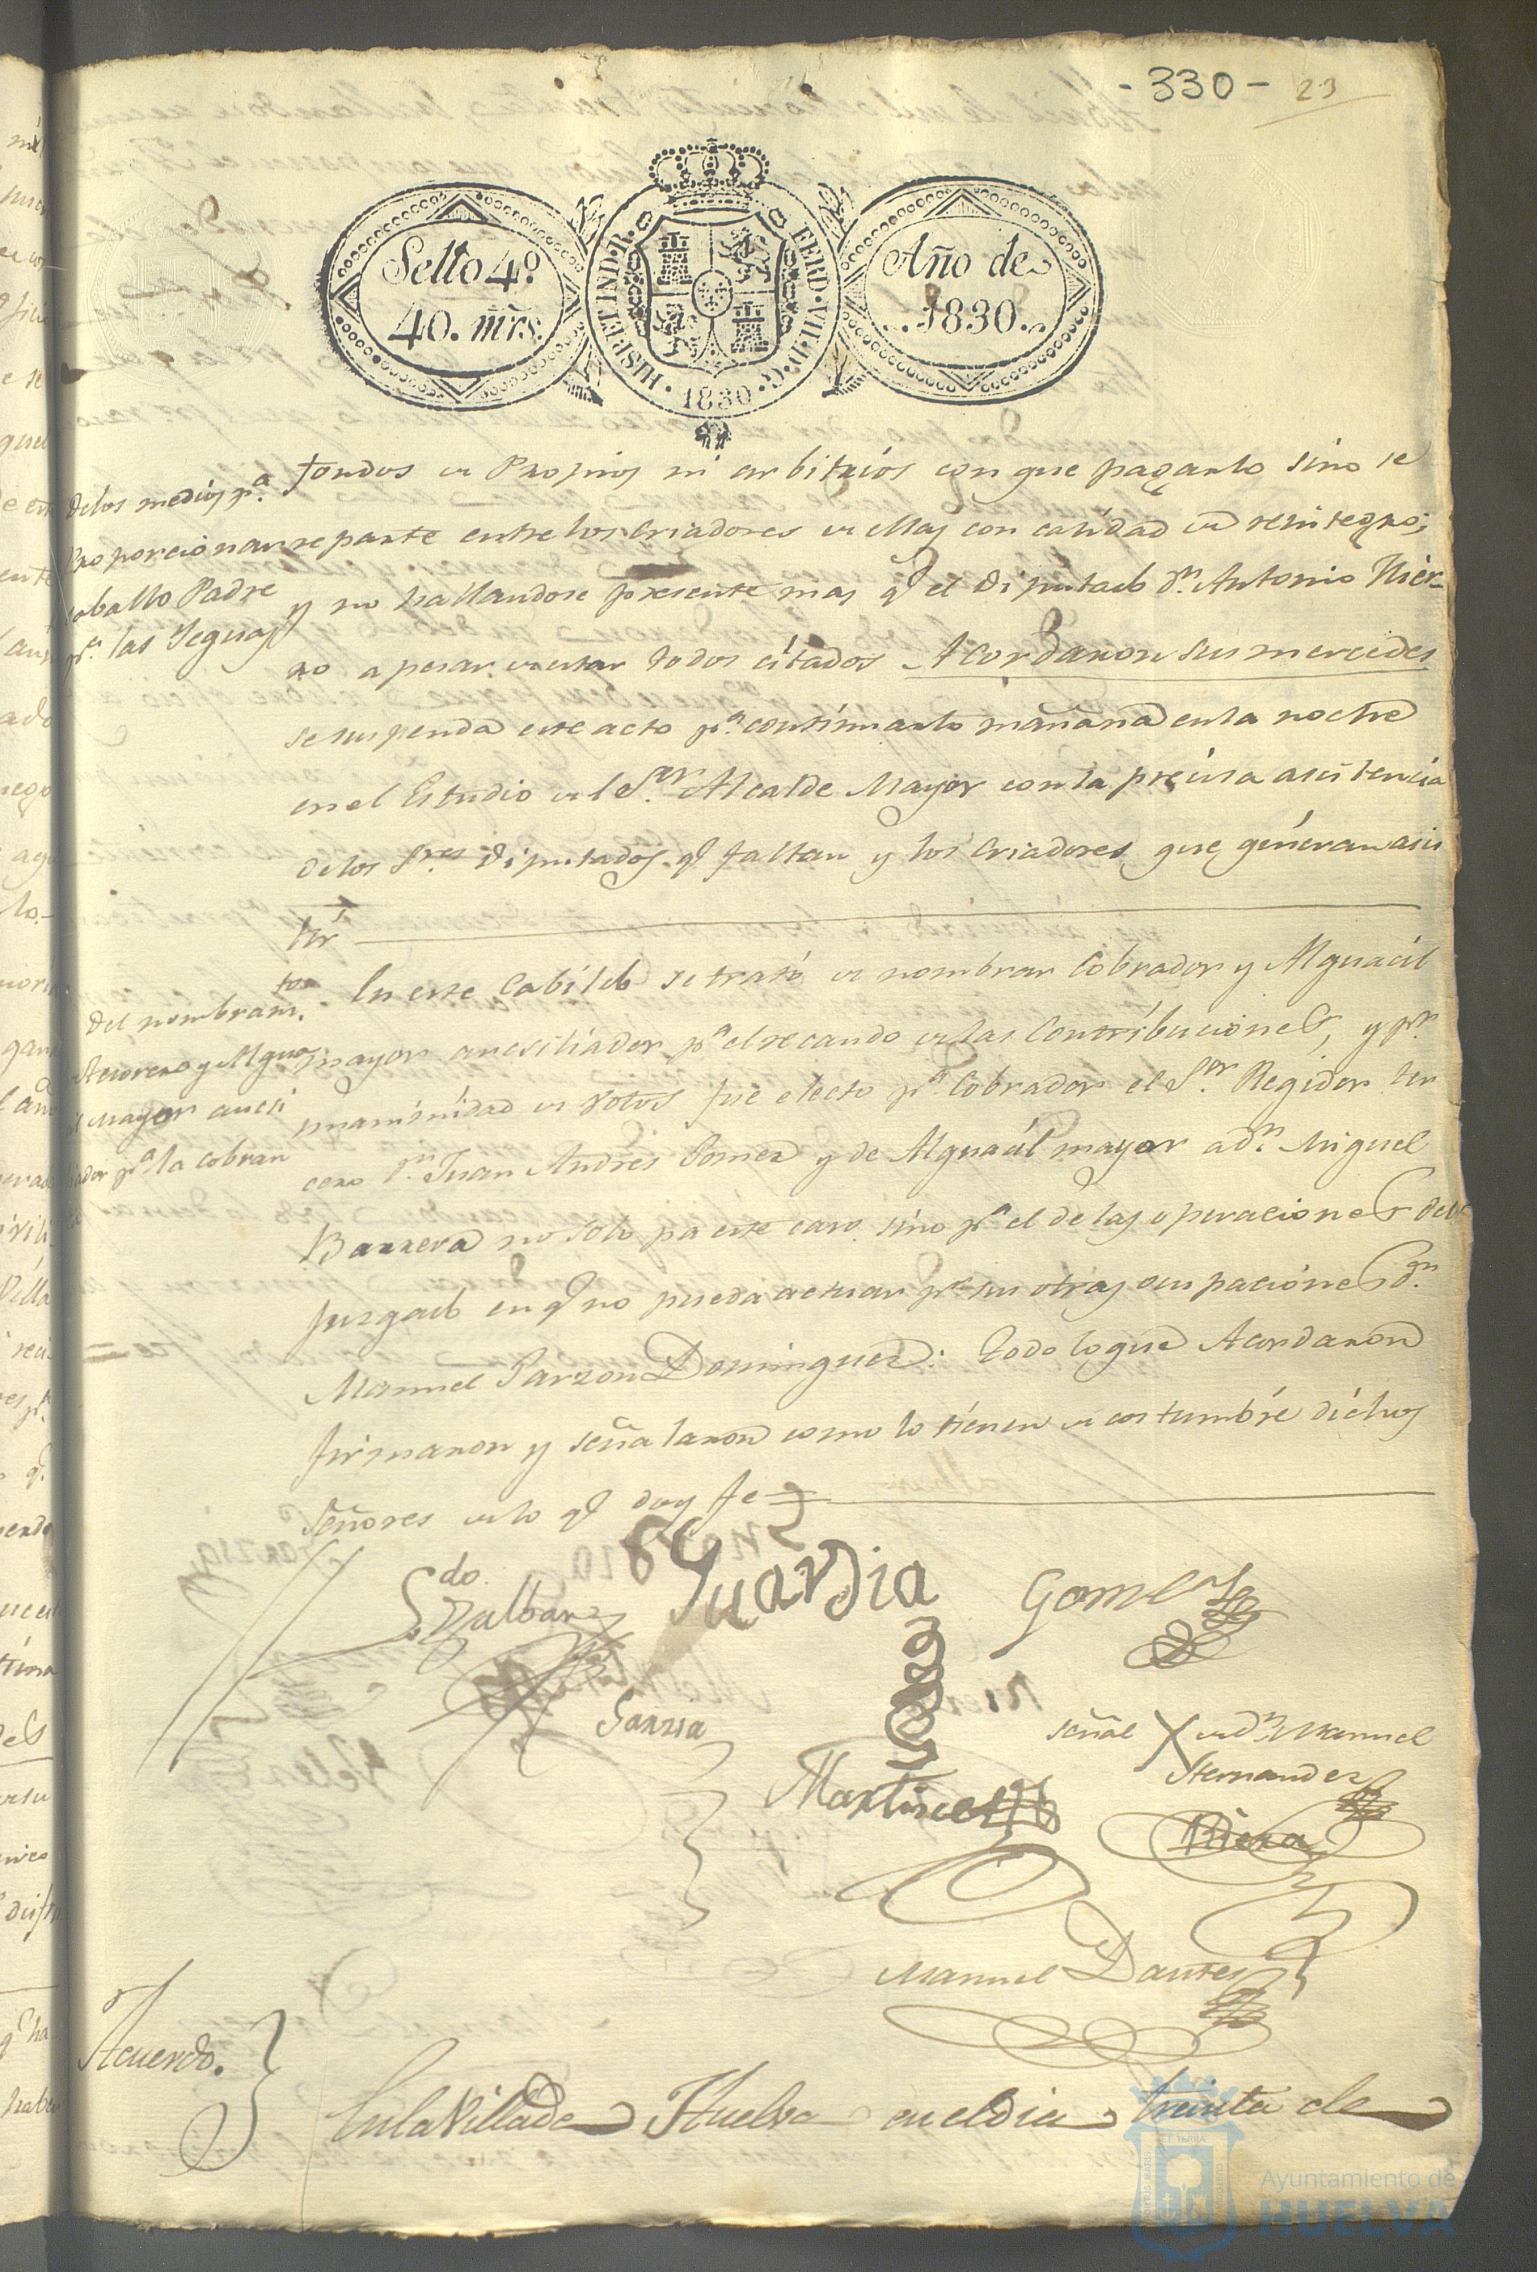 - 330 - 23
Sello 4º
40. mrs.
HISP. ET IND. R. FERD. VII. D. G. 1830
Año de
1830.
De los medios pª
proporcionar
caballo Padre
pª. las Yeguas
fondos de Propios ni arbitrios con que pagarlo sino se
reparte entre los Criadores de ellas con calidad de reintegro;
y no hallandose presente mas qe el Diputado Dn. Antonio Hier-
ro apesar de estar todos citados Acordaron sus mercedes
se suspenda este acto pª. continuarlo mañana en la noche
en el Estudio del Sor. Alcalde Mayor con la precisa asistencia
de los Sres Diputados qe faltan y los Criadores que quieran asis
tir
Del nombramto.
de Tesorero y Algua
l mayor aucsi
liador pª la cobran
En este Cabildo se trató de nombrar Cobrador y Alguacil
mayor aucsiliador pª el recaudo de las Contribuciones, y pr.
unanimidad de votos fue electo pª Cobrador el Sor. Regidor ter
cero Dn. Juan Andres Gomez y de Alguacil mayor a Dn. Miguel
Barrera no solo pa este caso sino pª el de las operaciones del
Juzgado en qe no pueda actuar pr sus otras ocupaciones Dn.
Manuel Garzon Dominguez: Todo lo que Acordaron
firmaron y señalaron como lo tienen de costumbre dichos
Señores de lo qe doy fe=
Ldo. Zalbar
Guardia
Gomez
Garzia
señal X de Dn. Manuel
Hernandez
Martinez
Riera
Manuel Dantes
Acuerdo.
En la Villa de Huelva en el dia treinta de
Ayuntamiento de
HUELVA